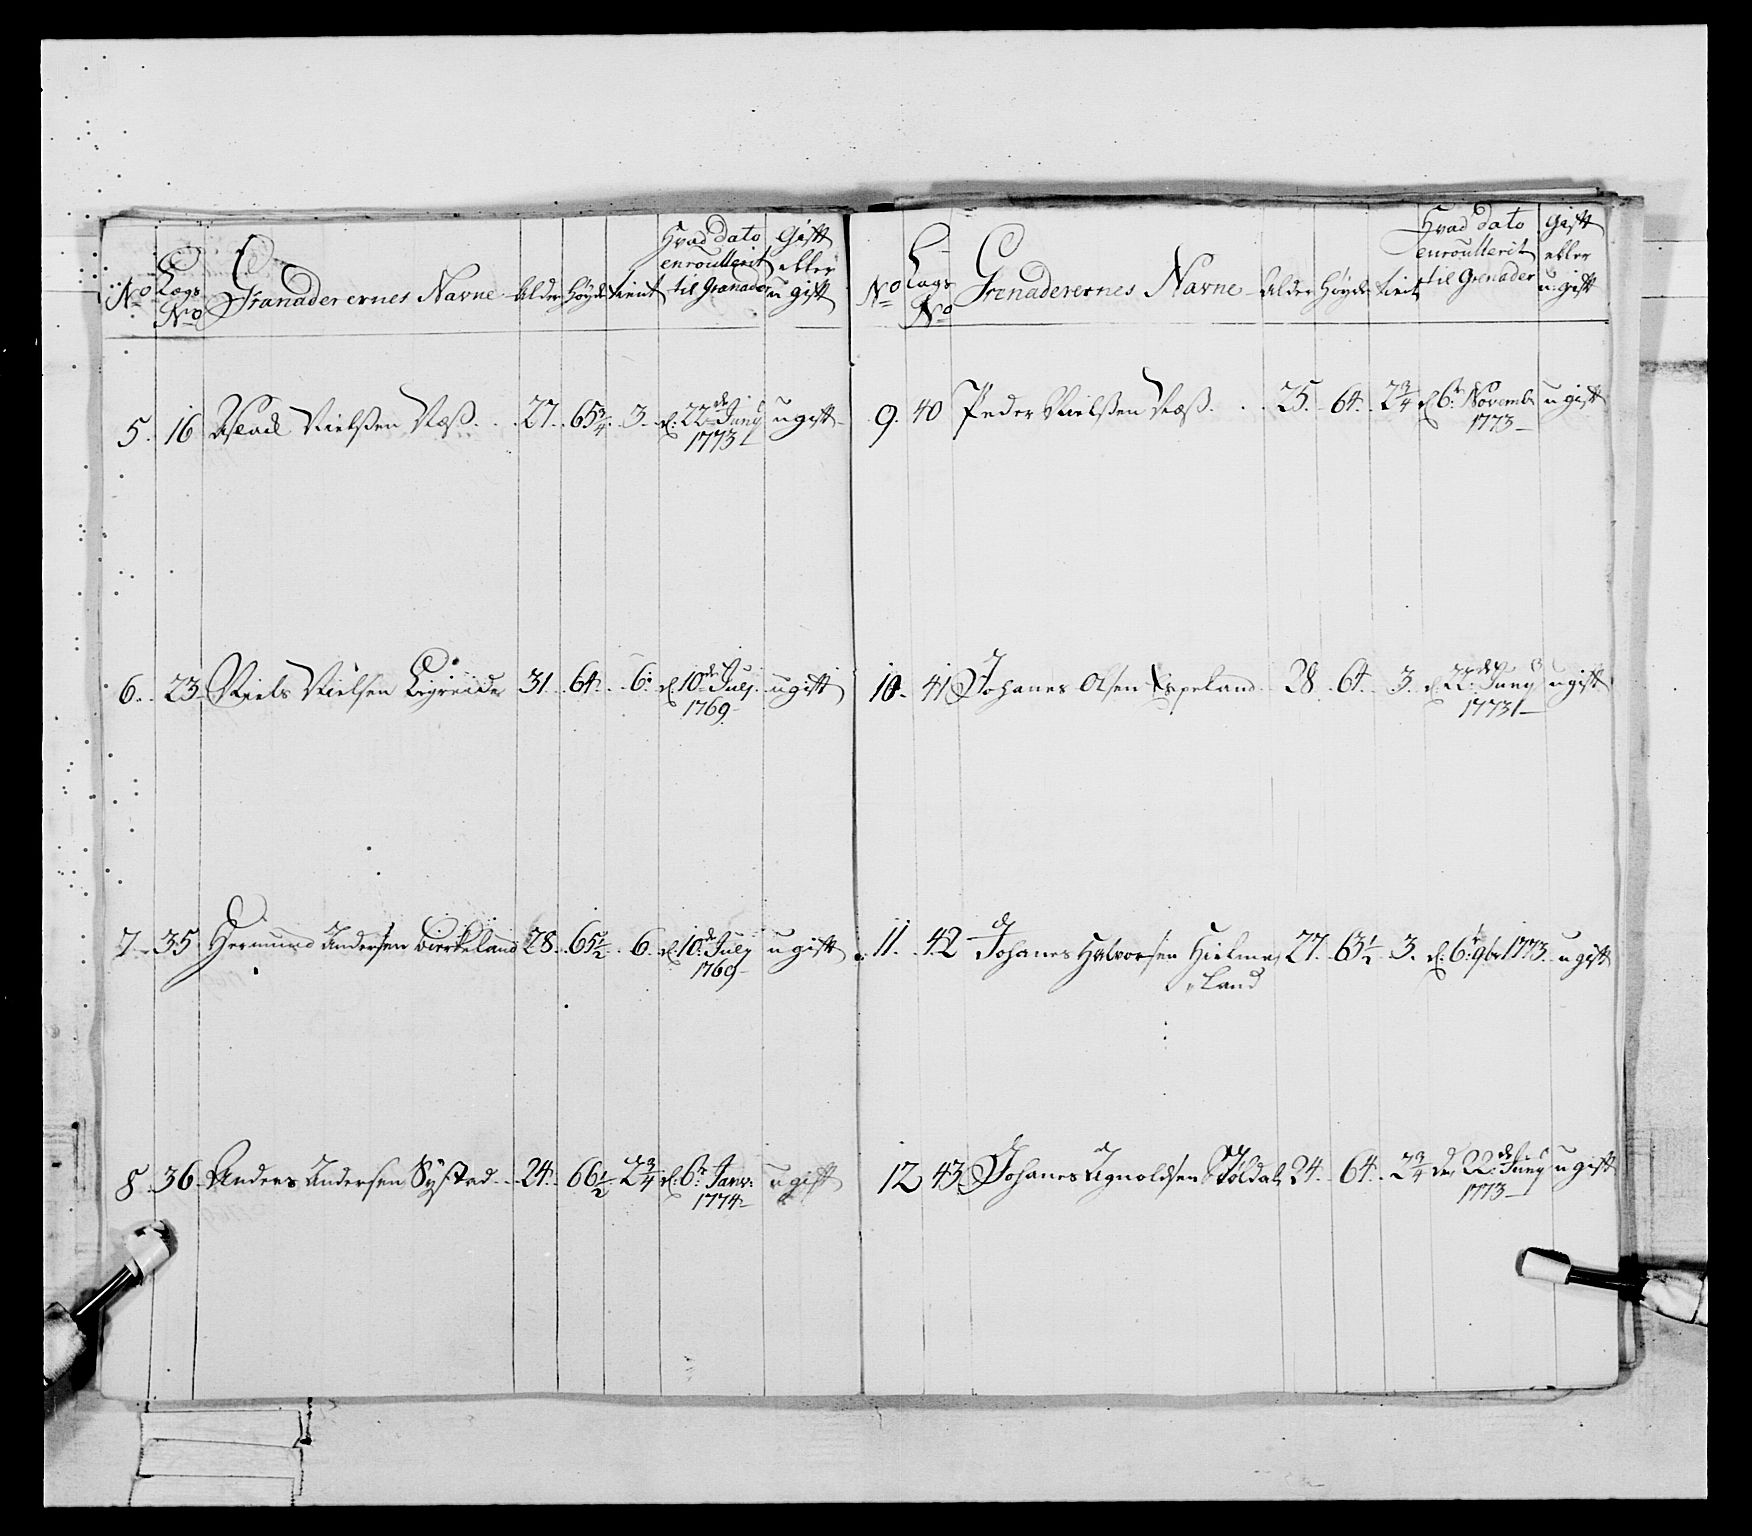 No Lægs No Granaderernes Navne Alder höyde tient Hvad dato enroullerit til Granader Gift eller u gift
5. 16 Nielsen Næss. 27. 65 3/4. 3. d. 22de Juny 1773 ugift
6. 23 Niels Nielsen 31. 64. 6. d. 10de July 1769 ugift
7. 35 Hermund Andersen Birkeland 28. 65 1/2. 6. d. 10de July 1769 ugift
8. 36 Anders Andersen Systad 24. 66 1/2 2 3/4 d. 6te Janv: 1774 ugift
No Lægs No Grenaderernes Navne Alder höyde tient Hvad dato enroullerit til Grenader Gift eller u gift
9. 40 Peder Nielsen Næss. 25. 64. 2 3/4 d. 6te Novemb: 1773 ugift
10. 41 Johanes Olsen Espeland 28. 64. 3. d. 22de Juny 1773 ugift
11. 42 Johanes Halvorsen Hielme 27. 63 1/2. 3. d. 6te 9br 1773. ugift
land
12 43 Johanes 24. 64. 2 3/4 den 22de Juny 1773 ugift